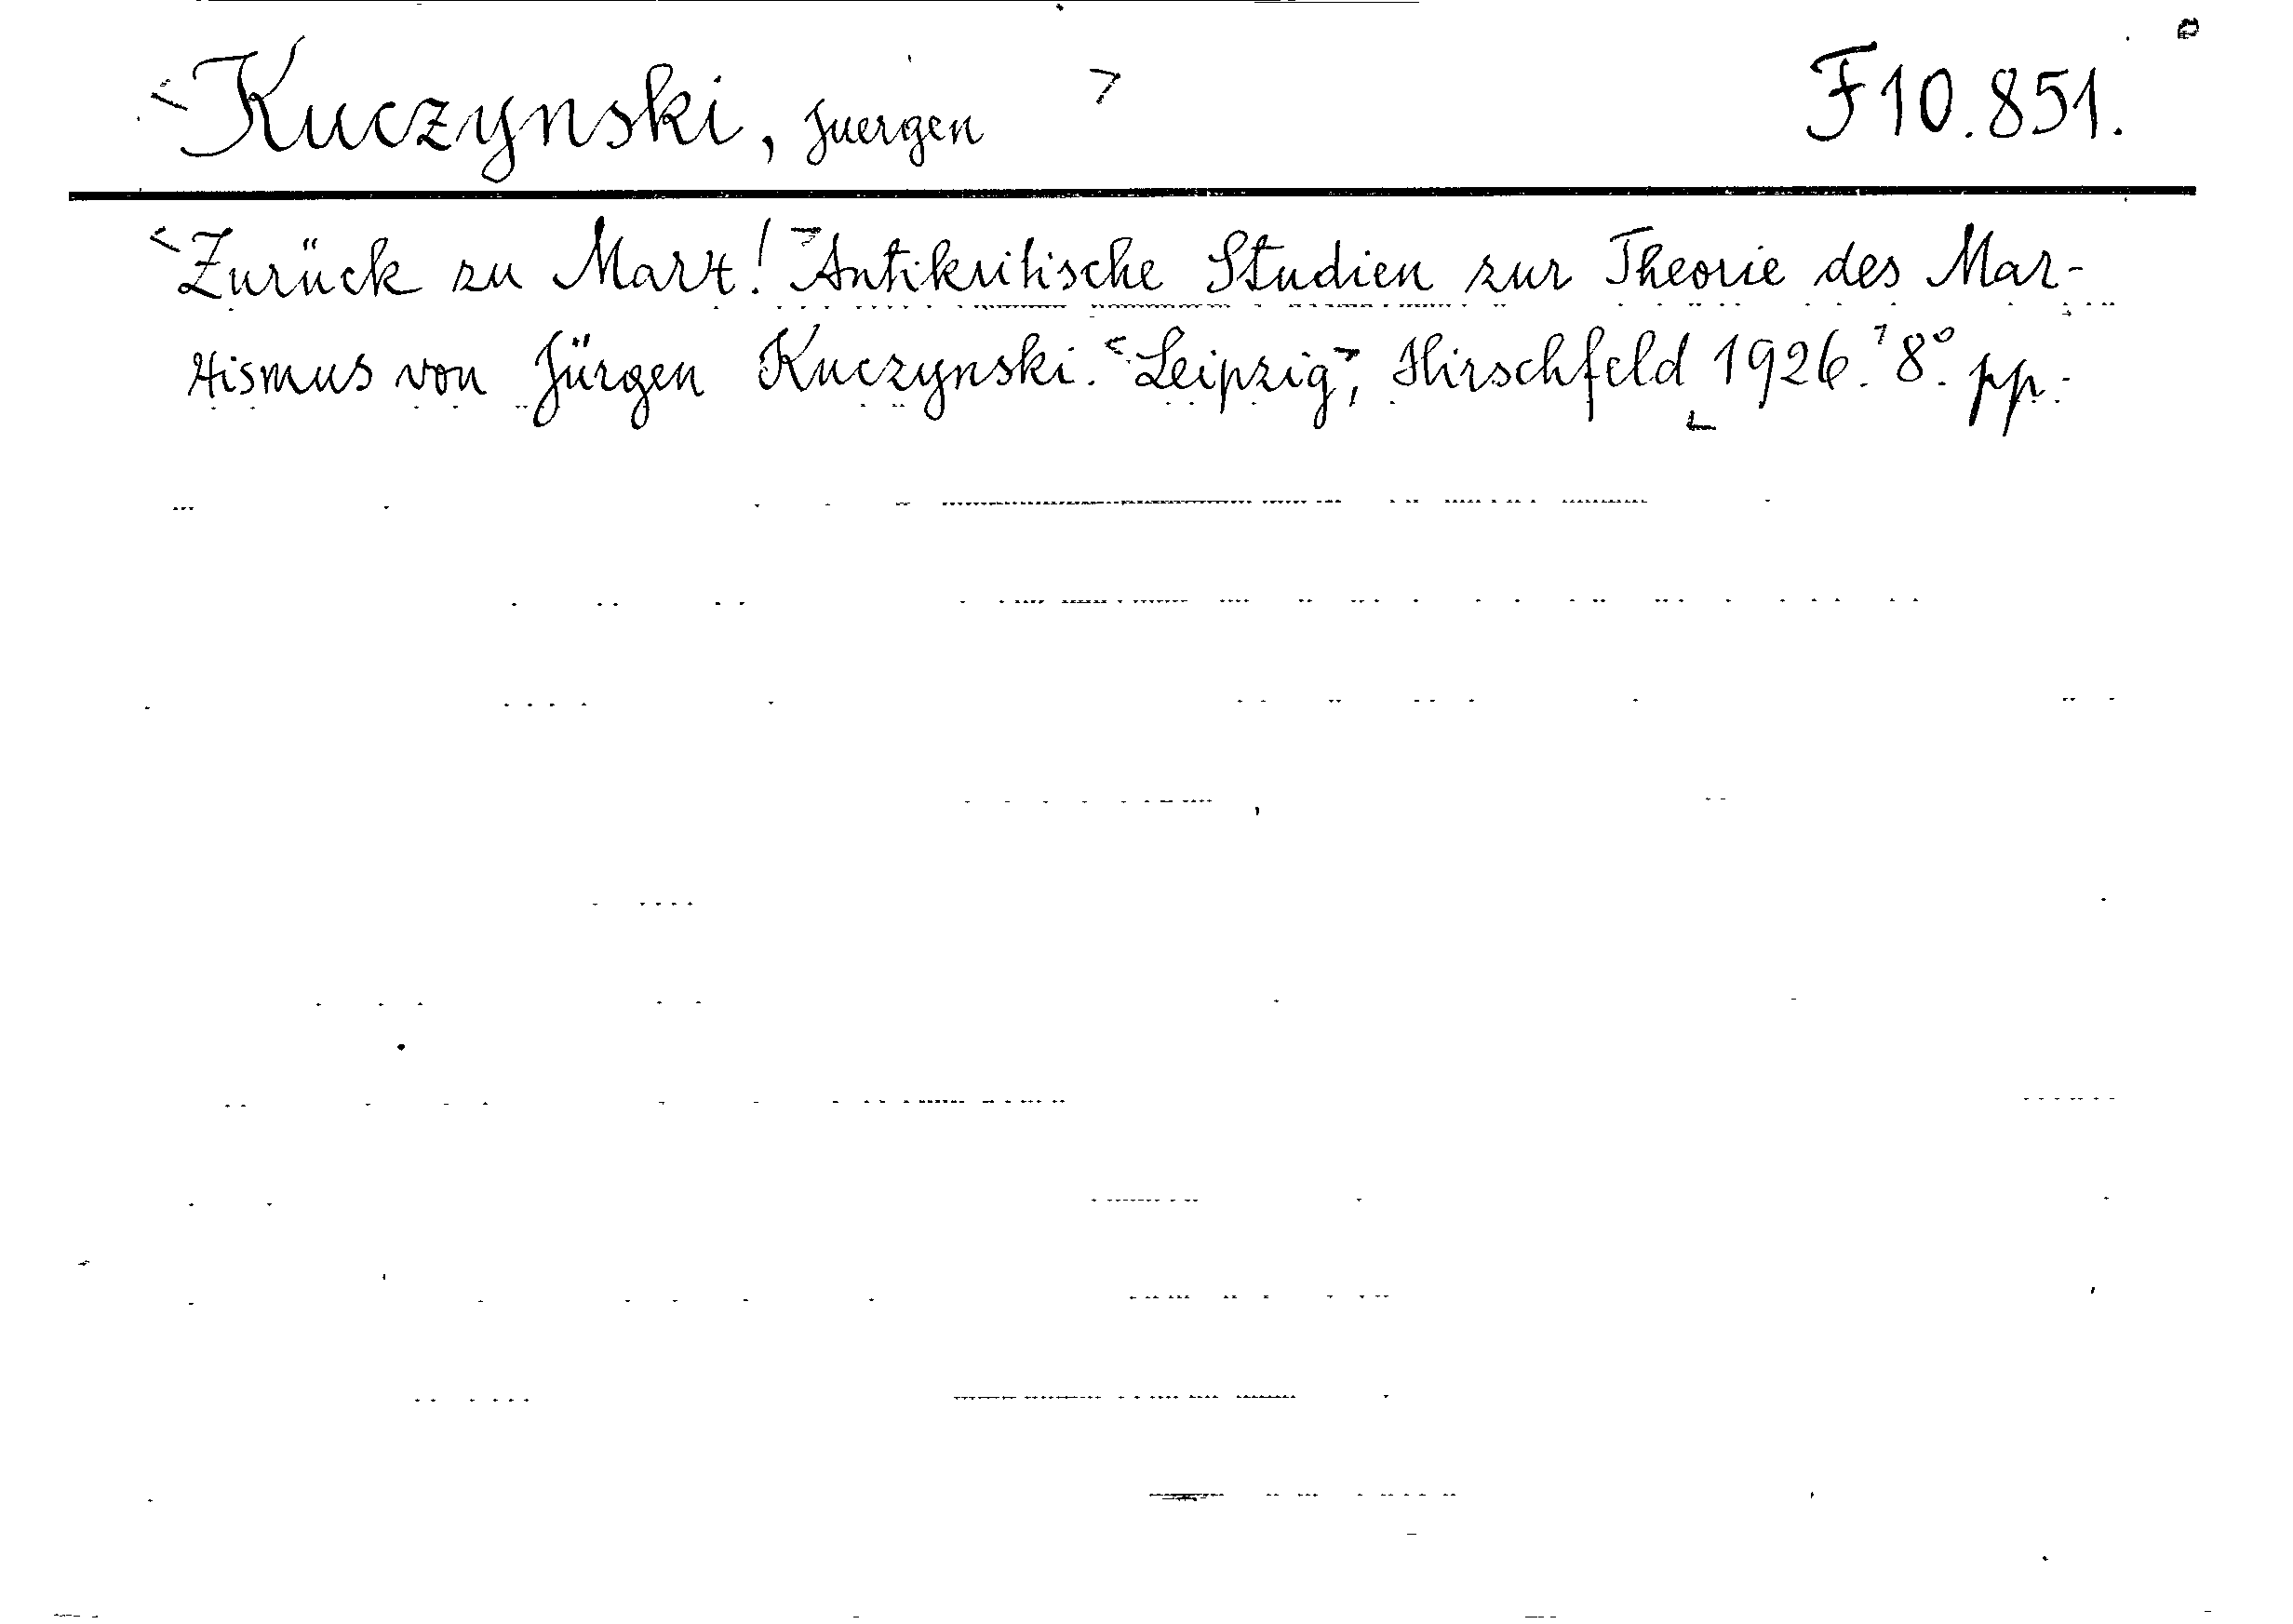 <Kuczynski, Juergen> F 10.851.
<Zurück zu Marx!> Antikritische Studien zur Theorie des Mar-
xismus von Jürgen Kuczynski. <Leipzig>, Hirschfeld <1926.> 8°. pp.